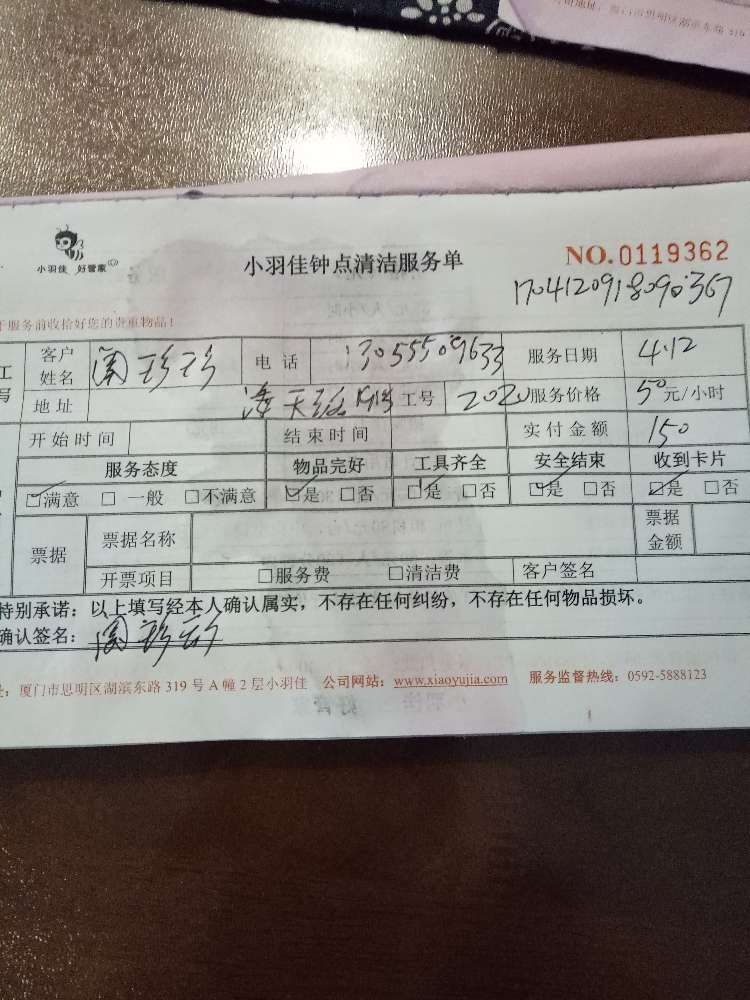 司地址：厦门市思明区湖滨东路 319
小羽佳 好管家
小羽佳钟点清洁服务单
NO.0119362
服务前收拾好您的贵重物品！
客户姓名 珍珍 电话 13055509633 服务日期 4.12
地址 工号 2020 服务价格 50元/小时
开始时间 结束时间 实付金额 150
服务态度 物品完好 工具齐全 安全结束 收到卡片
☑满意 □一般 □不满意 ☑是 □否 ☑是 □否 ☑是 □否 ☑是 □否
票据 票据名称 票据金额
开票项目 □服务费 □清洁费 客户签名
特别承诺：以上填写经本人确认属实，不存在任何纠纷，不存在任何物品损坏。
确认签名：
：厦门市思明区湖滨东路 319 号 A 幢 2 层小羽佳 公司网站：www.xiaoyujia.com 服务监督热线：0592-5888123